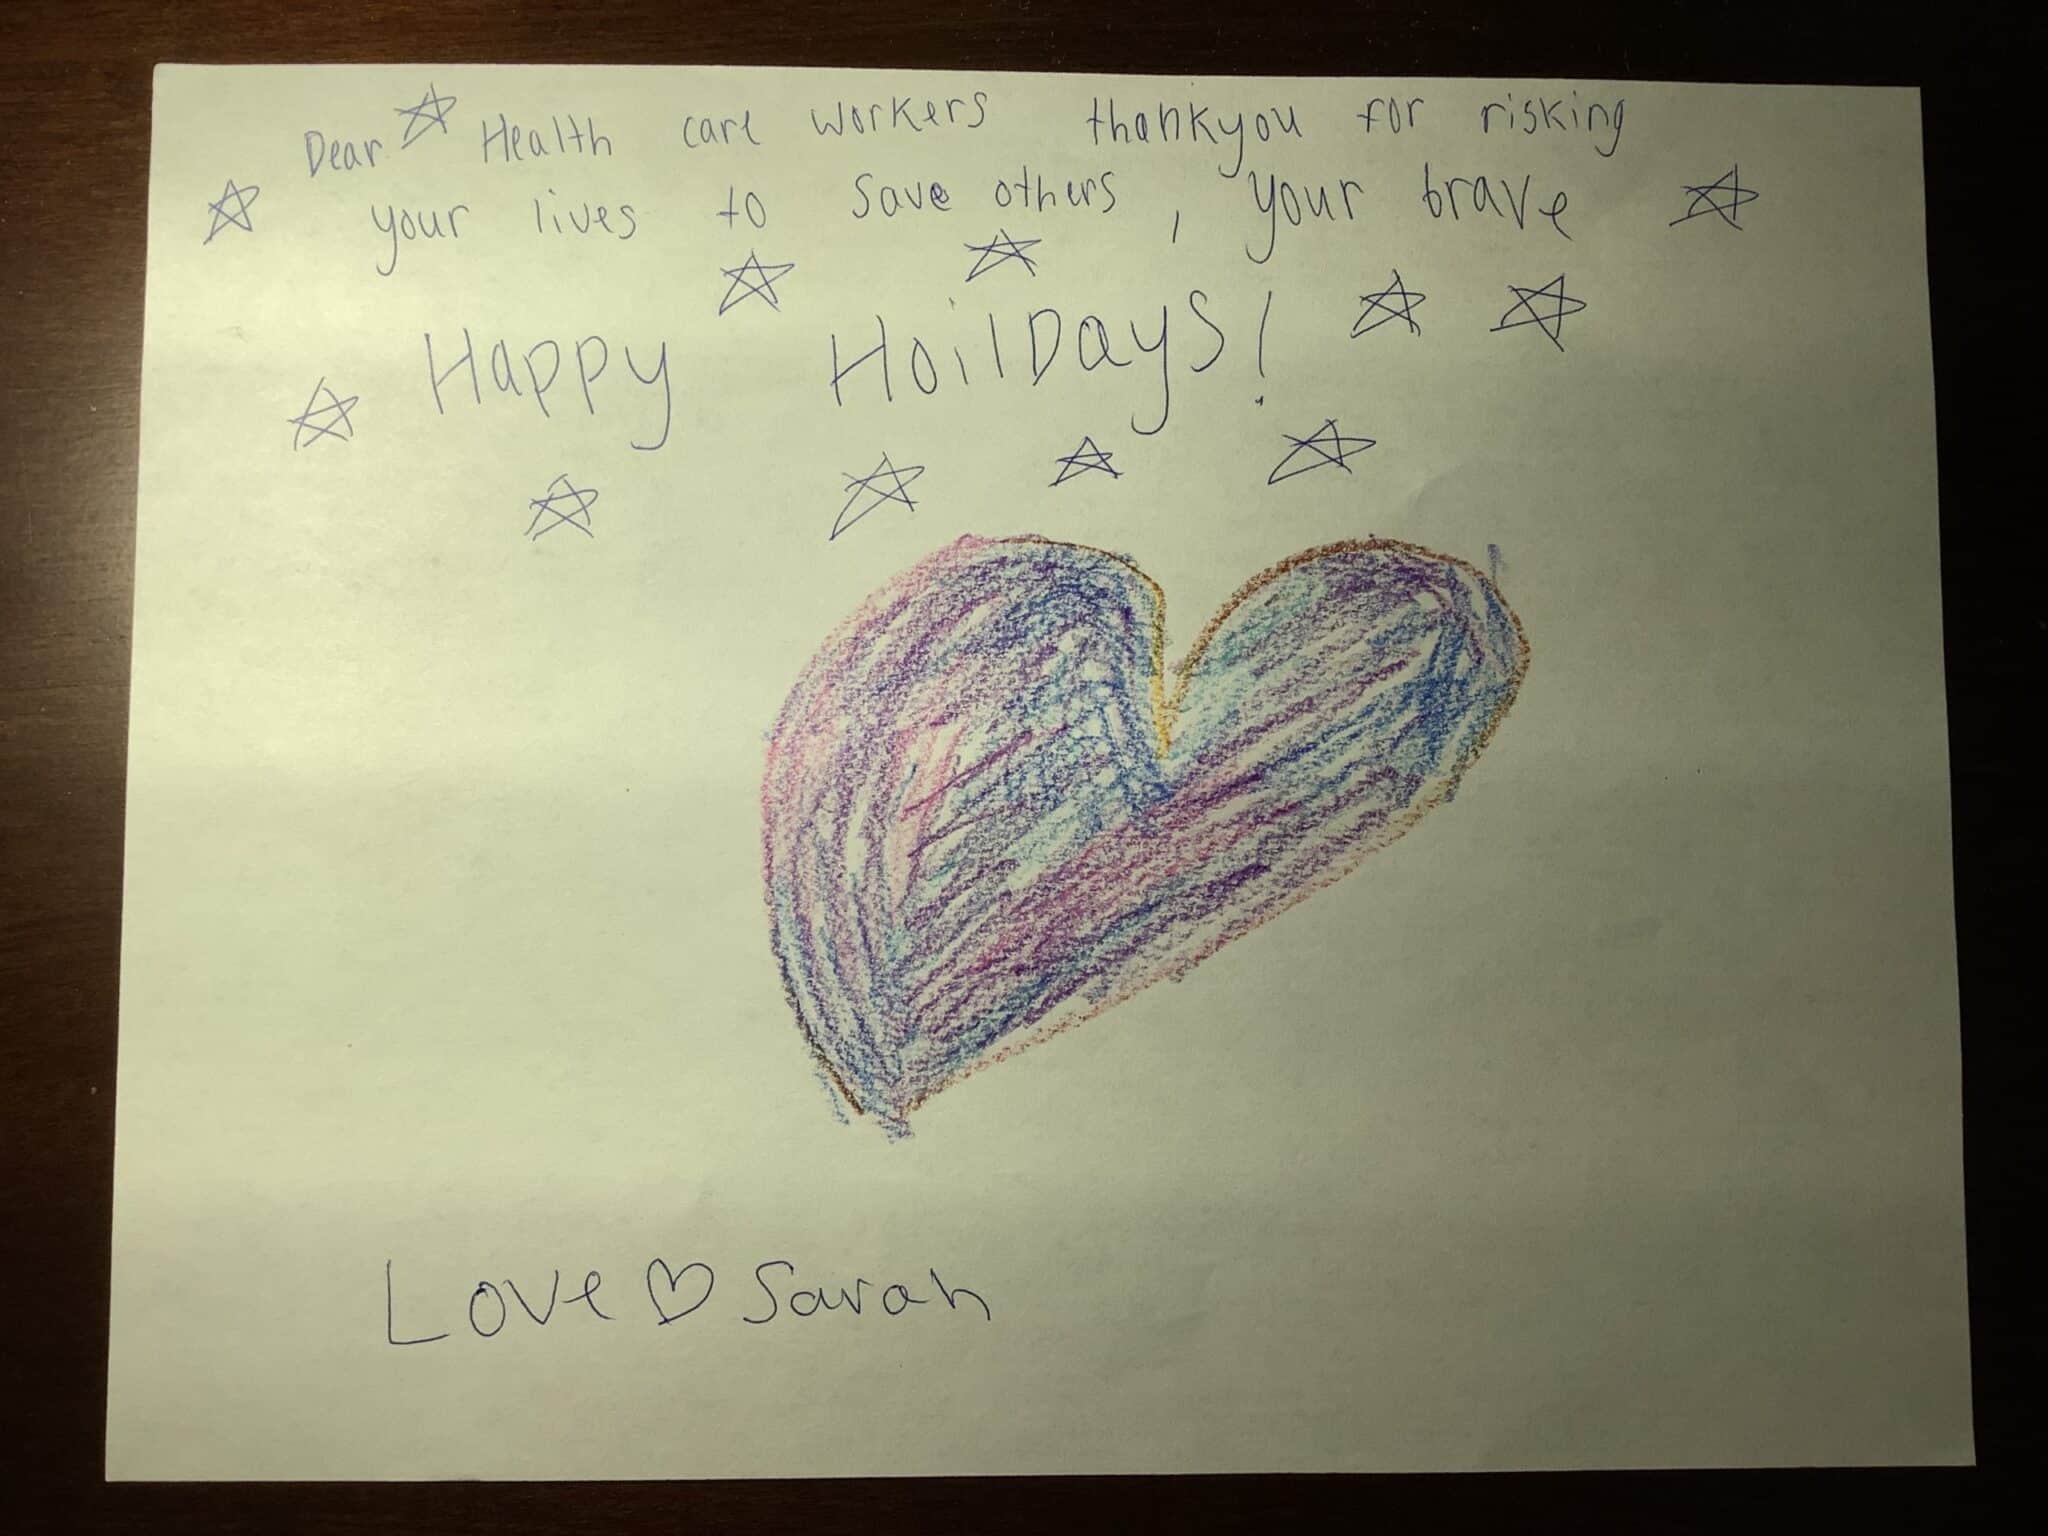 Dear Health care workers thankyou for risking
your lives to save others, your brave
Happy HoilDays!
Love Sarah